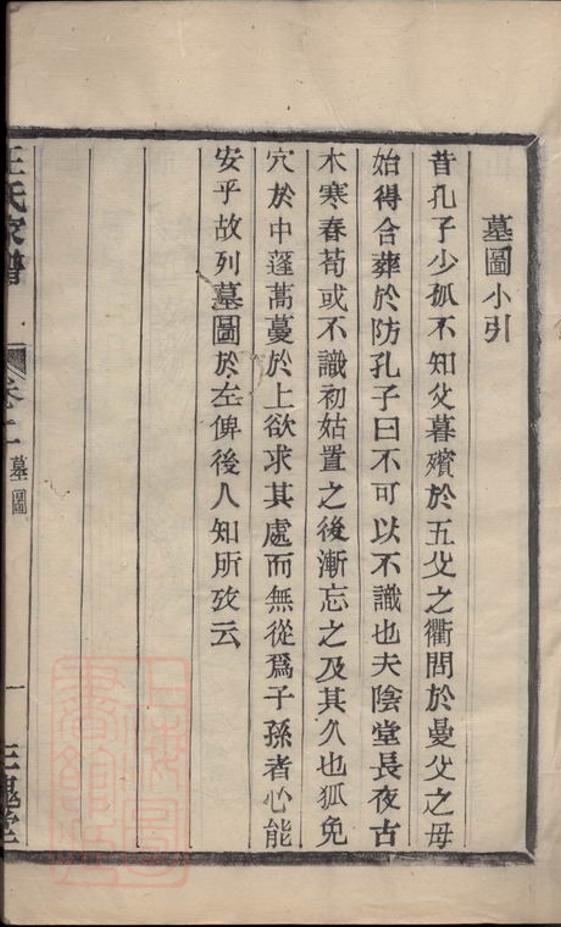 墓圖小引
昔孔子少孤不知父暮殯於五父之衢問於曼父之母
始得合葬於防孔子曰不可以不識也夫陰堂長夜古
木寒春荀或不識初姑置之後漸忘之及其久也狐兔
穴於中蓬蒿蔓於上欲求其處而無從爲子孫者心能
安乎故列墓圖於左俾後人知所攷云
王氏家譜
卷二
墓圖
一
三槐堂
上海圖
書館藏